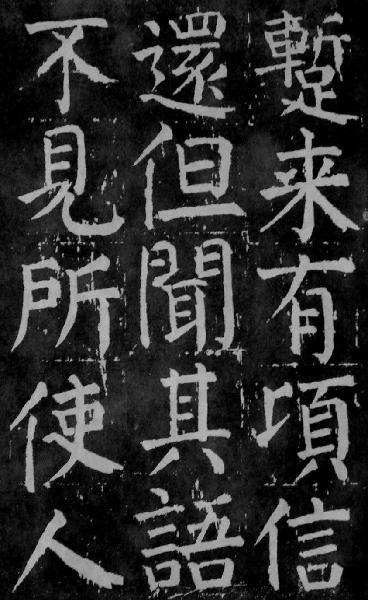 蹔来有頃信
還但聞其語
不見所使人